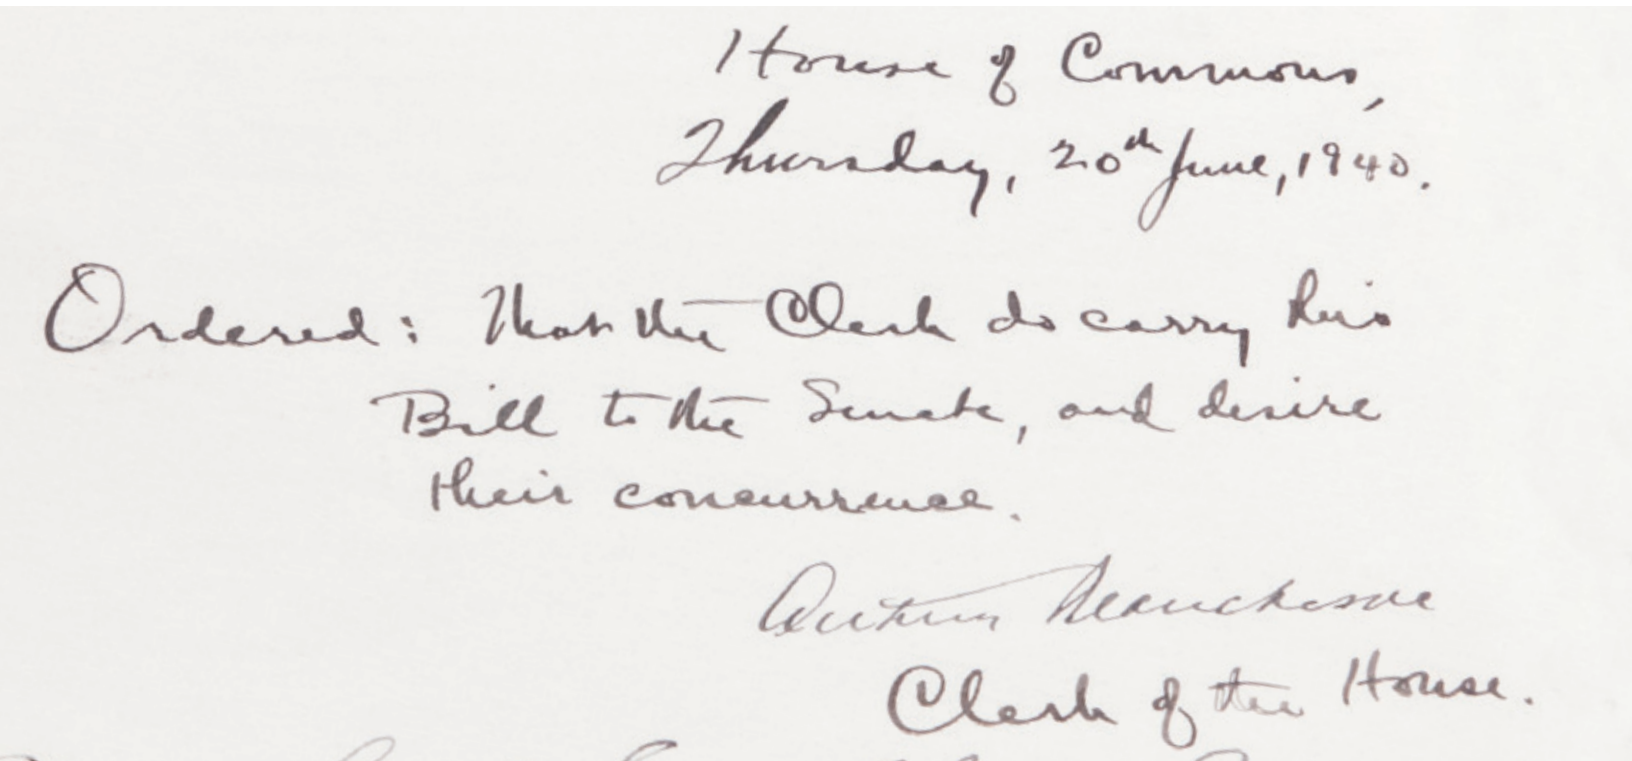 House of Commons,
Thursday, 20th June, 1940.
Ordered: That the Clerk do carry this
Bill to the Senate, and desire
their concurrence.
Arthur Beauchesne
Clerk of the House.